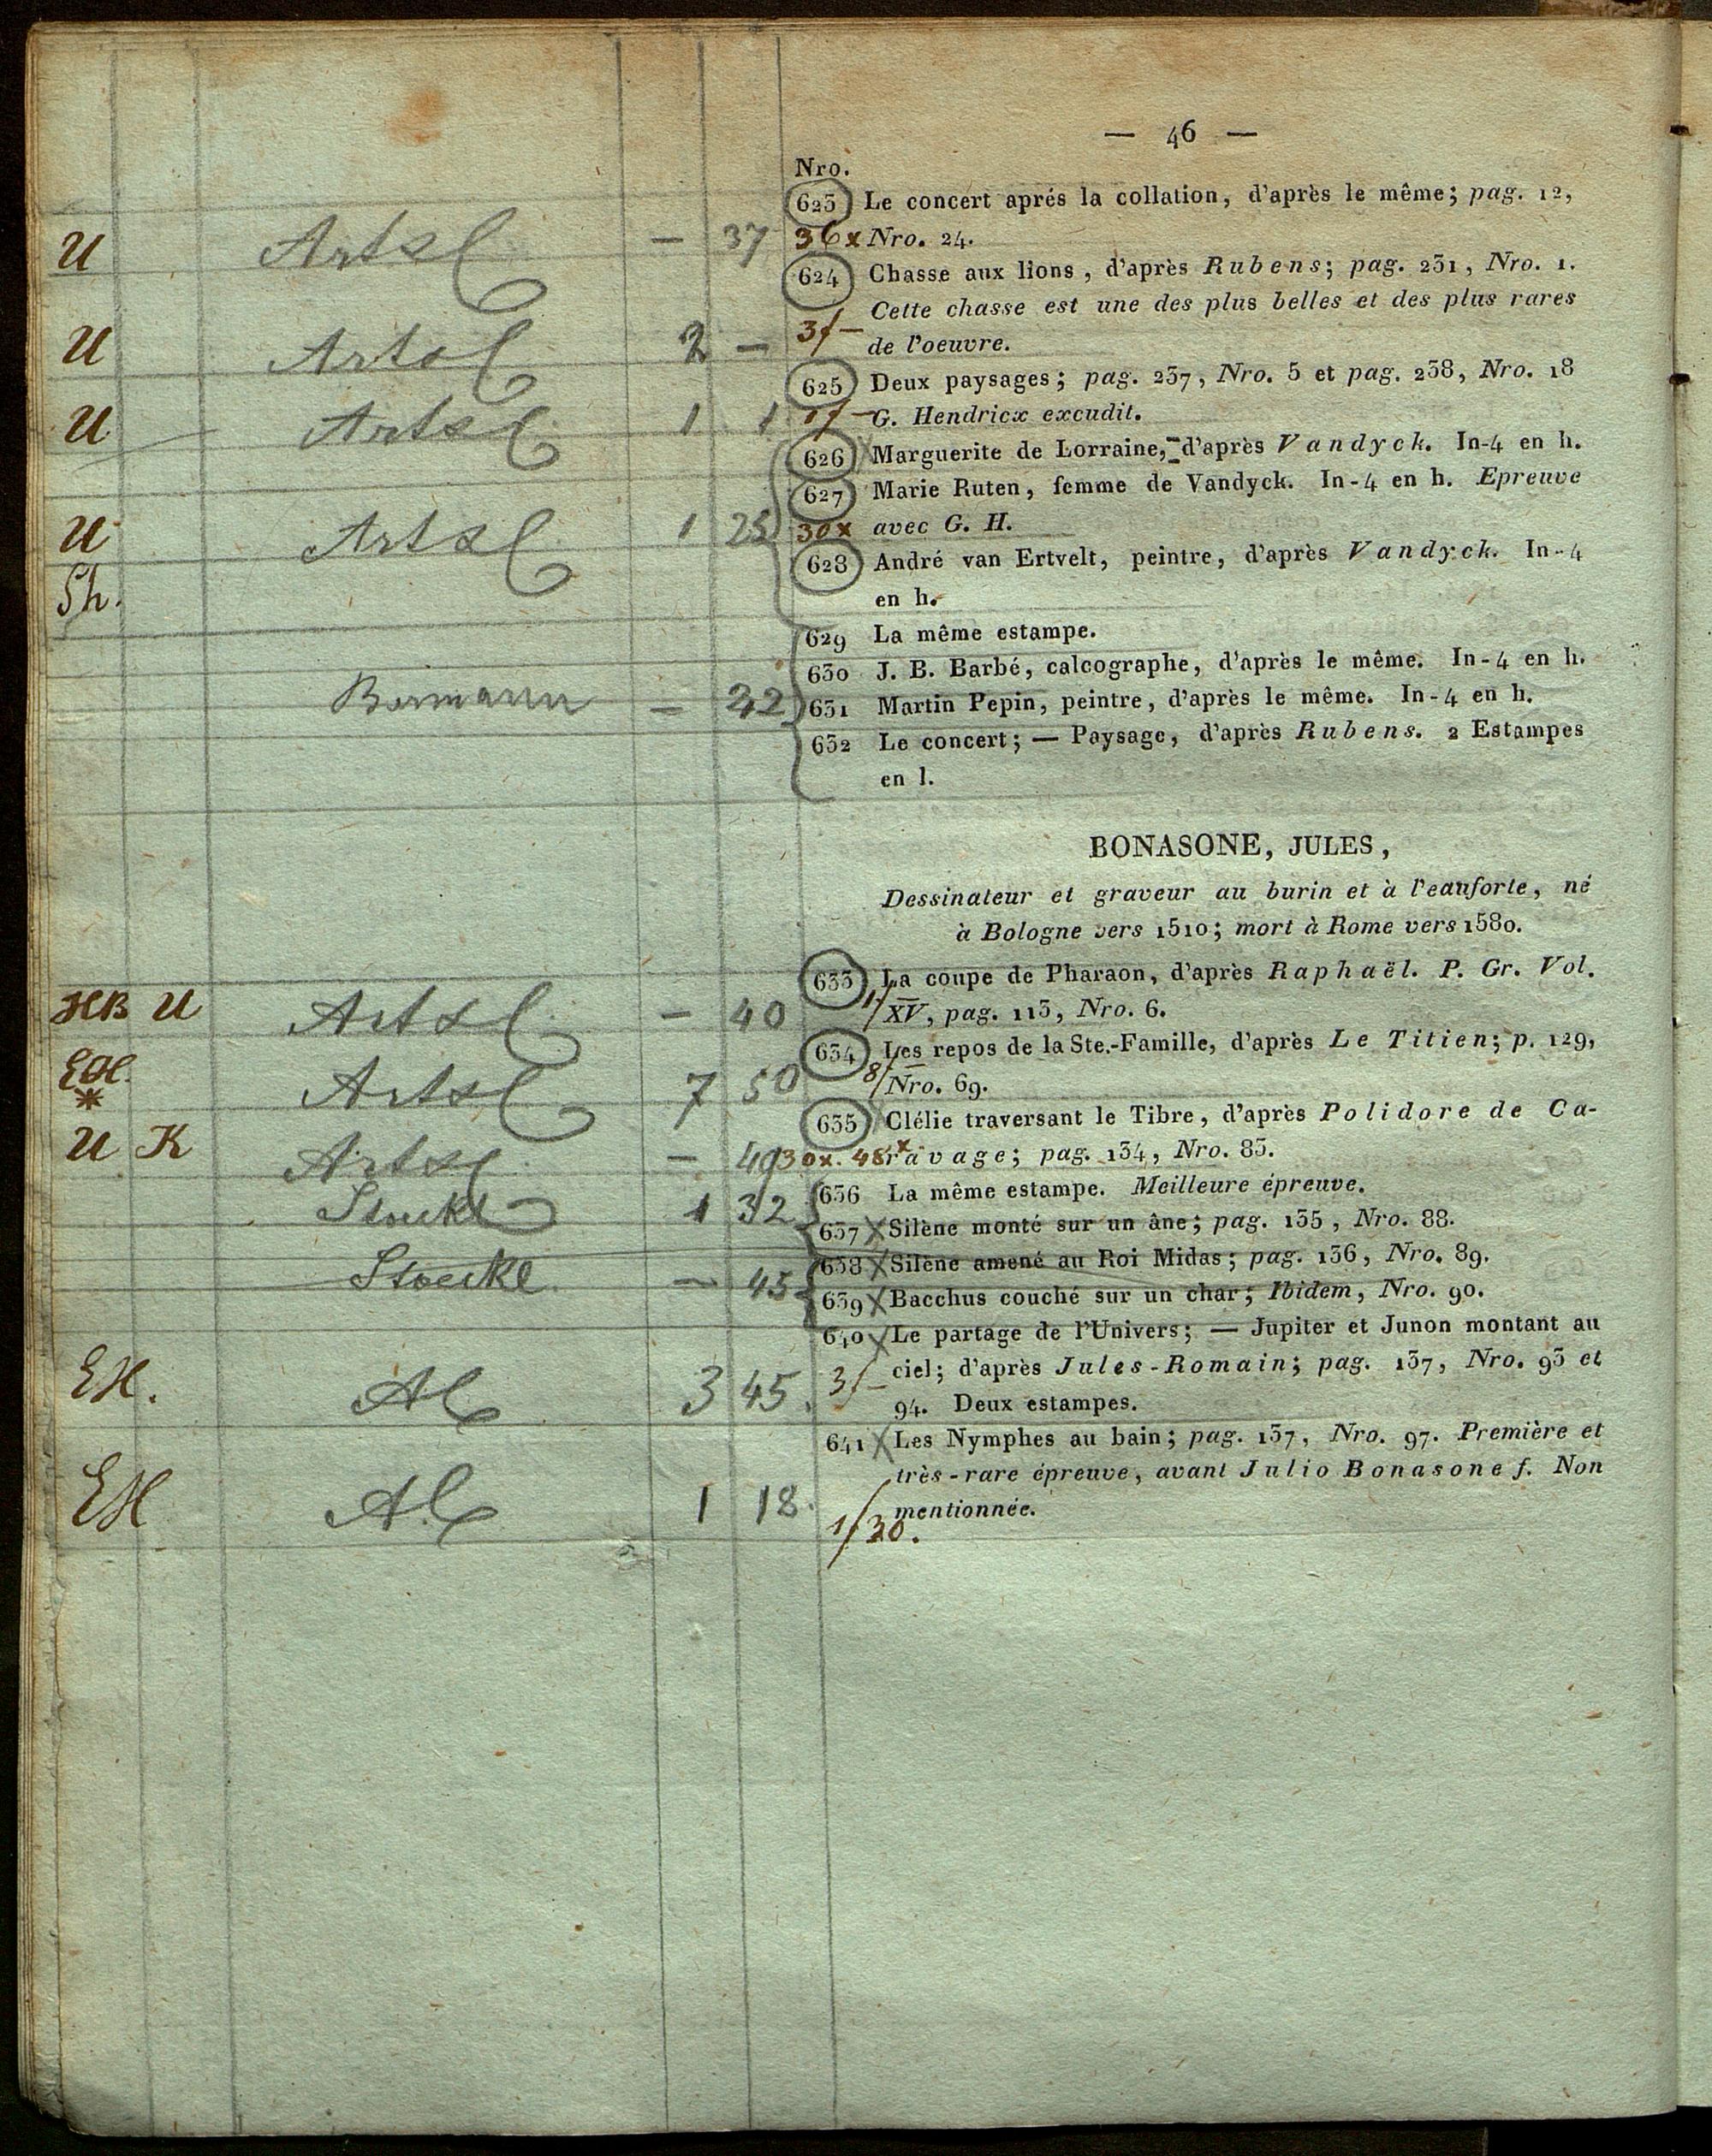 — 46 —
Nro.
623 Le concert aprés la collation, d'après le même; pag. 12,
U Artsl — 37 36x Nro. 24.
624 Chasse aux lions, d'après Rubens; pag. 231, Nro. 1.
Cette chasse est une des plus belles et des plus rares
U Artsl 2 — 3f— de l'oeuvre.
625 Deux paysages; pag. 237, Nro. 5 et pag. 238, Nro. 18
U Artsl 1 1 1f— G. Hendricx excudit.
626 Marguerite de Lorraine, d'après Vandyck. In-4 en h.
627 Marie Ruten, femme de Vandyck. In-4 en h. Epreuve
U Artsl 1 25 30x avec G. H.
628 André van Ertvelt, peintre, d'après Vandyck. In-4
Sh. en h.
629 La même estampe.
630 J. B. Barbé, calcographe, d'après le même. In-4 en h.
Bermann — 22 631 Martin Pepin, peintre, d'après le même. In-4 en h.
632 Le concert; — Paysage, d'après Rubens. 2 Estampes
en l.
BONASONE, JULES,
Dessinateur et graveur au burin et à l'eauforte, né
à Bologne vers 1510; mort à Rome vers 1580.
633 La coupe de Pharaon, d'après Raphaël. P. Gr. Vol.
HB U Artsl — 40 1f— XV, pag. 113, Nro. 6.
634 Les repos de la Ste.-Famille, d'après Le Titien; p. 129,
EH. * Artsl 7 50 8f— Nro. 69.
635 Clélie traversant le Tibre, d'après Polidore de Ca-
U K Artsl — 49 30x. 48x ravage; pag. 134, Nro. 83.
Stoeckl 1 32 636 La même estampe. Meilleure épreuve.
637 x Silène monté sur un âne; pag. 135, Nro. 88.
638 x Silène amené au Roi Midas; pag. 136, Nro. 89.
Stoeckl — 45 639 x Bacchus couché sur un char; Ibidem, Nro. 90.
640 x Le partage de l'Univers; — Jupiter et Junon montant au
EH. Al 3 45. 3f— ciel; d'après Jules-Romain; pag. 137, Nro. 93 et
94. Deux estampes.
641 x Les Nymphes au bain; pag. 137, Nro. 97. Première et
très-rare épreuve, avant Julio Bonasone f. Non
EH Al 1 18. 1f30. mentionnée.